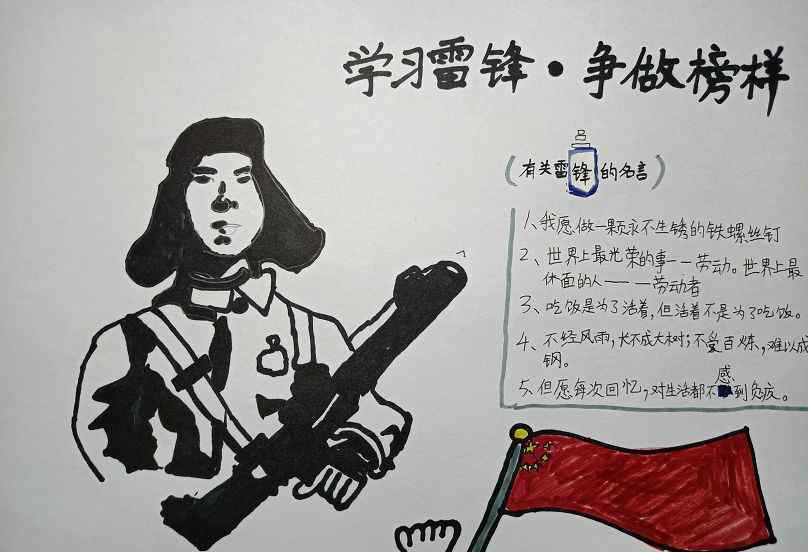 学习雷锋·争做榜样
(有关雷锋的名言)
1、我愿做一颗永不生锈的铁螺丝钉
2、世界上最光荣的事——劳动。世界上最
体面的人——劳动者
3、吃饭是为了活着,但活着不是为了吃饭。
4、不经风雨,长不成大树;不受百炼,难以成
钢。
5、但愿每次回忆,对生活都不感到负疚。